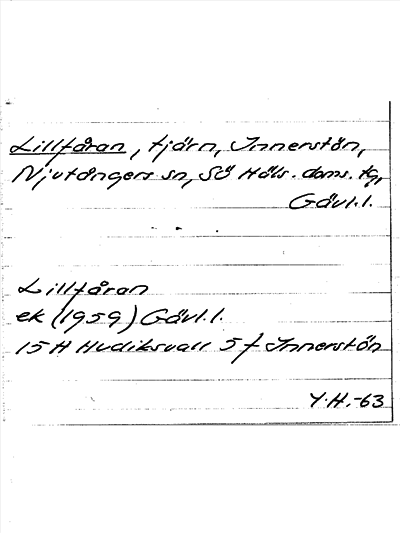 Lillfåran, tjärn, Innerstön,
Njutångers sn, SÖ Häls. doms. tg,
Gävl.l.
Lillfåran
ek (1959) Gävl.l.
15 H Hudiksvall 5 f Innerstön
Y.H.-63